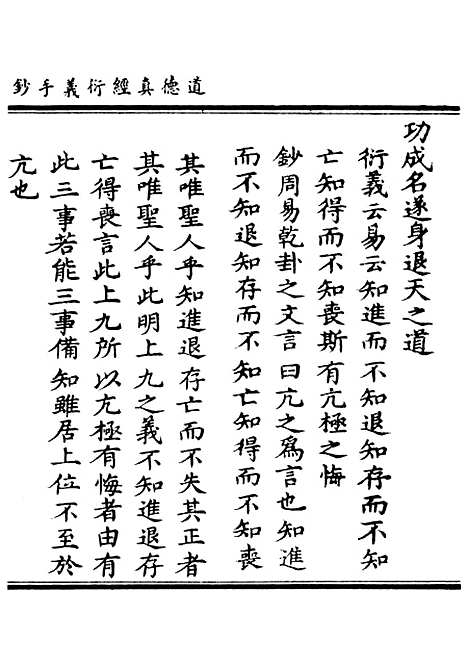 道德真經衍義手鈔
功成名遂身退天之道
衍義云易云知進而不知退知存而不知
亡知得而不知喪斯有亢極之悔
鈔周易乾卦之文言曰亢之爲言也知進
而不知退知存而不知亡知得而不知喪
其唯聖人乎知進退存亡而不失其正者
其唯聖人乎此明上九之義不知進退存
亡得喪言此上九所以亢極有悔者由有
此三事若能三事備知雖居上位不至於
亢也